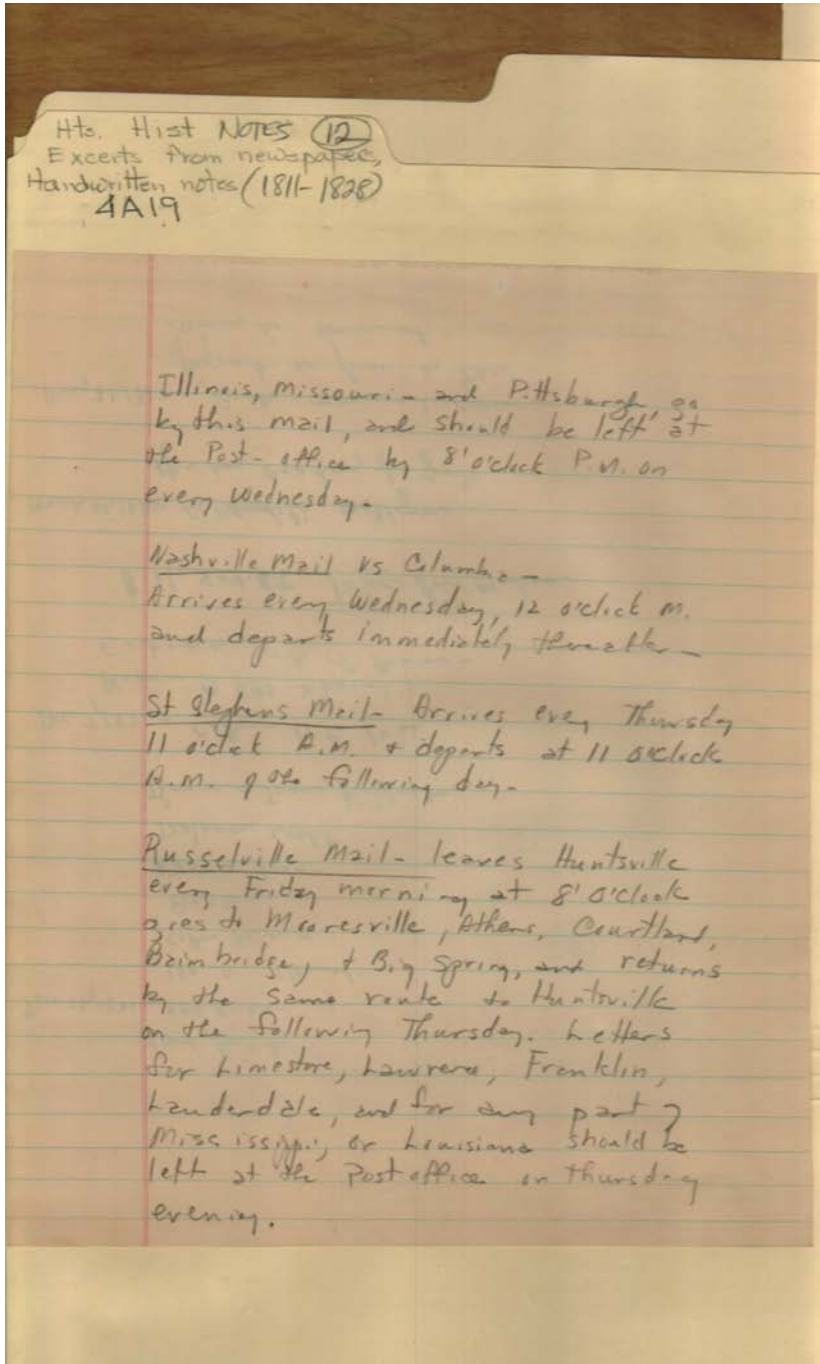 Hts. Hist NOTES 12
Excerts from newspapers,
Handwritten notes (1811-1828)
4A19
Illinois, Missouri - and Pittsburgh, go
by this mail, and should be left at
the Post-office by 8' o'clock P.M. on
every Wednesday.
Nashville Mail vs Columbia -
Arrives every Wednesday, 12 o'clock M.
and departs immediately thereafter -
St Stephens Mail - Arrives every Thursday
11 o'clock A.M. & departs at 11 o'clock
A.M. of the following day.
Russelville Mail - leaves Huntsville
every Friday morning at 8' o'clock
goes to Mooresville, Athens, Courtland,
Baimbridge, & Big Spring, and returns
by the same route to Huntsville
on the following Thursday. Letters
for Limestone, Lawrence, Franklin,
Lauderdale, and for any part of
Mississippi, or Louisiana should be
left at the Post office on Thursday
evening.